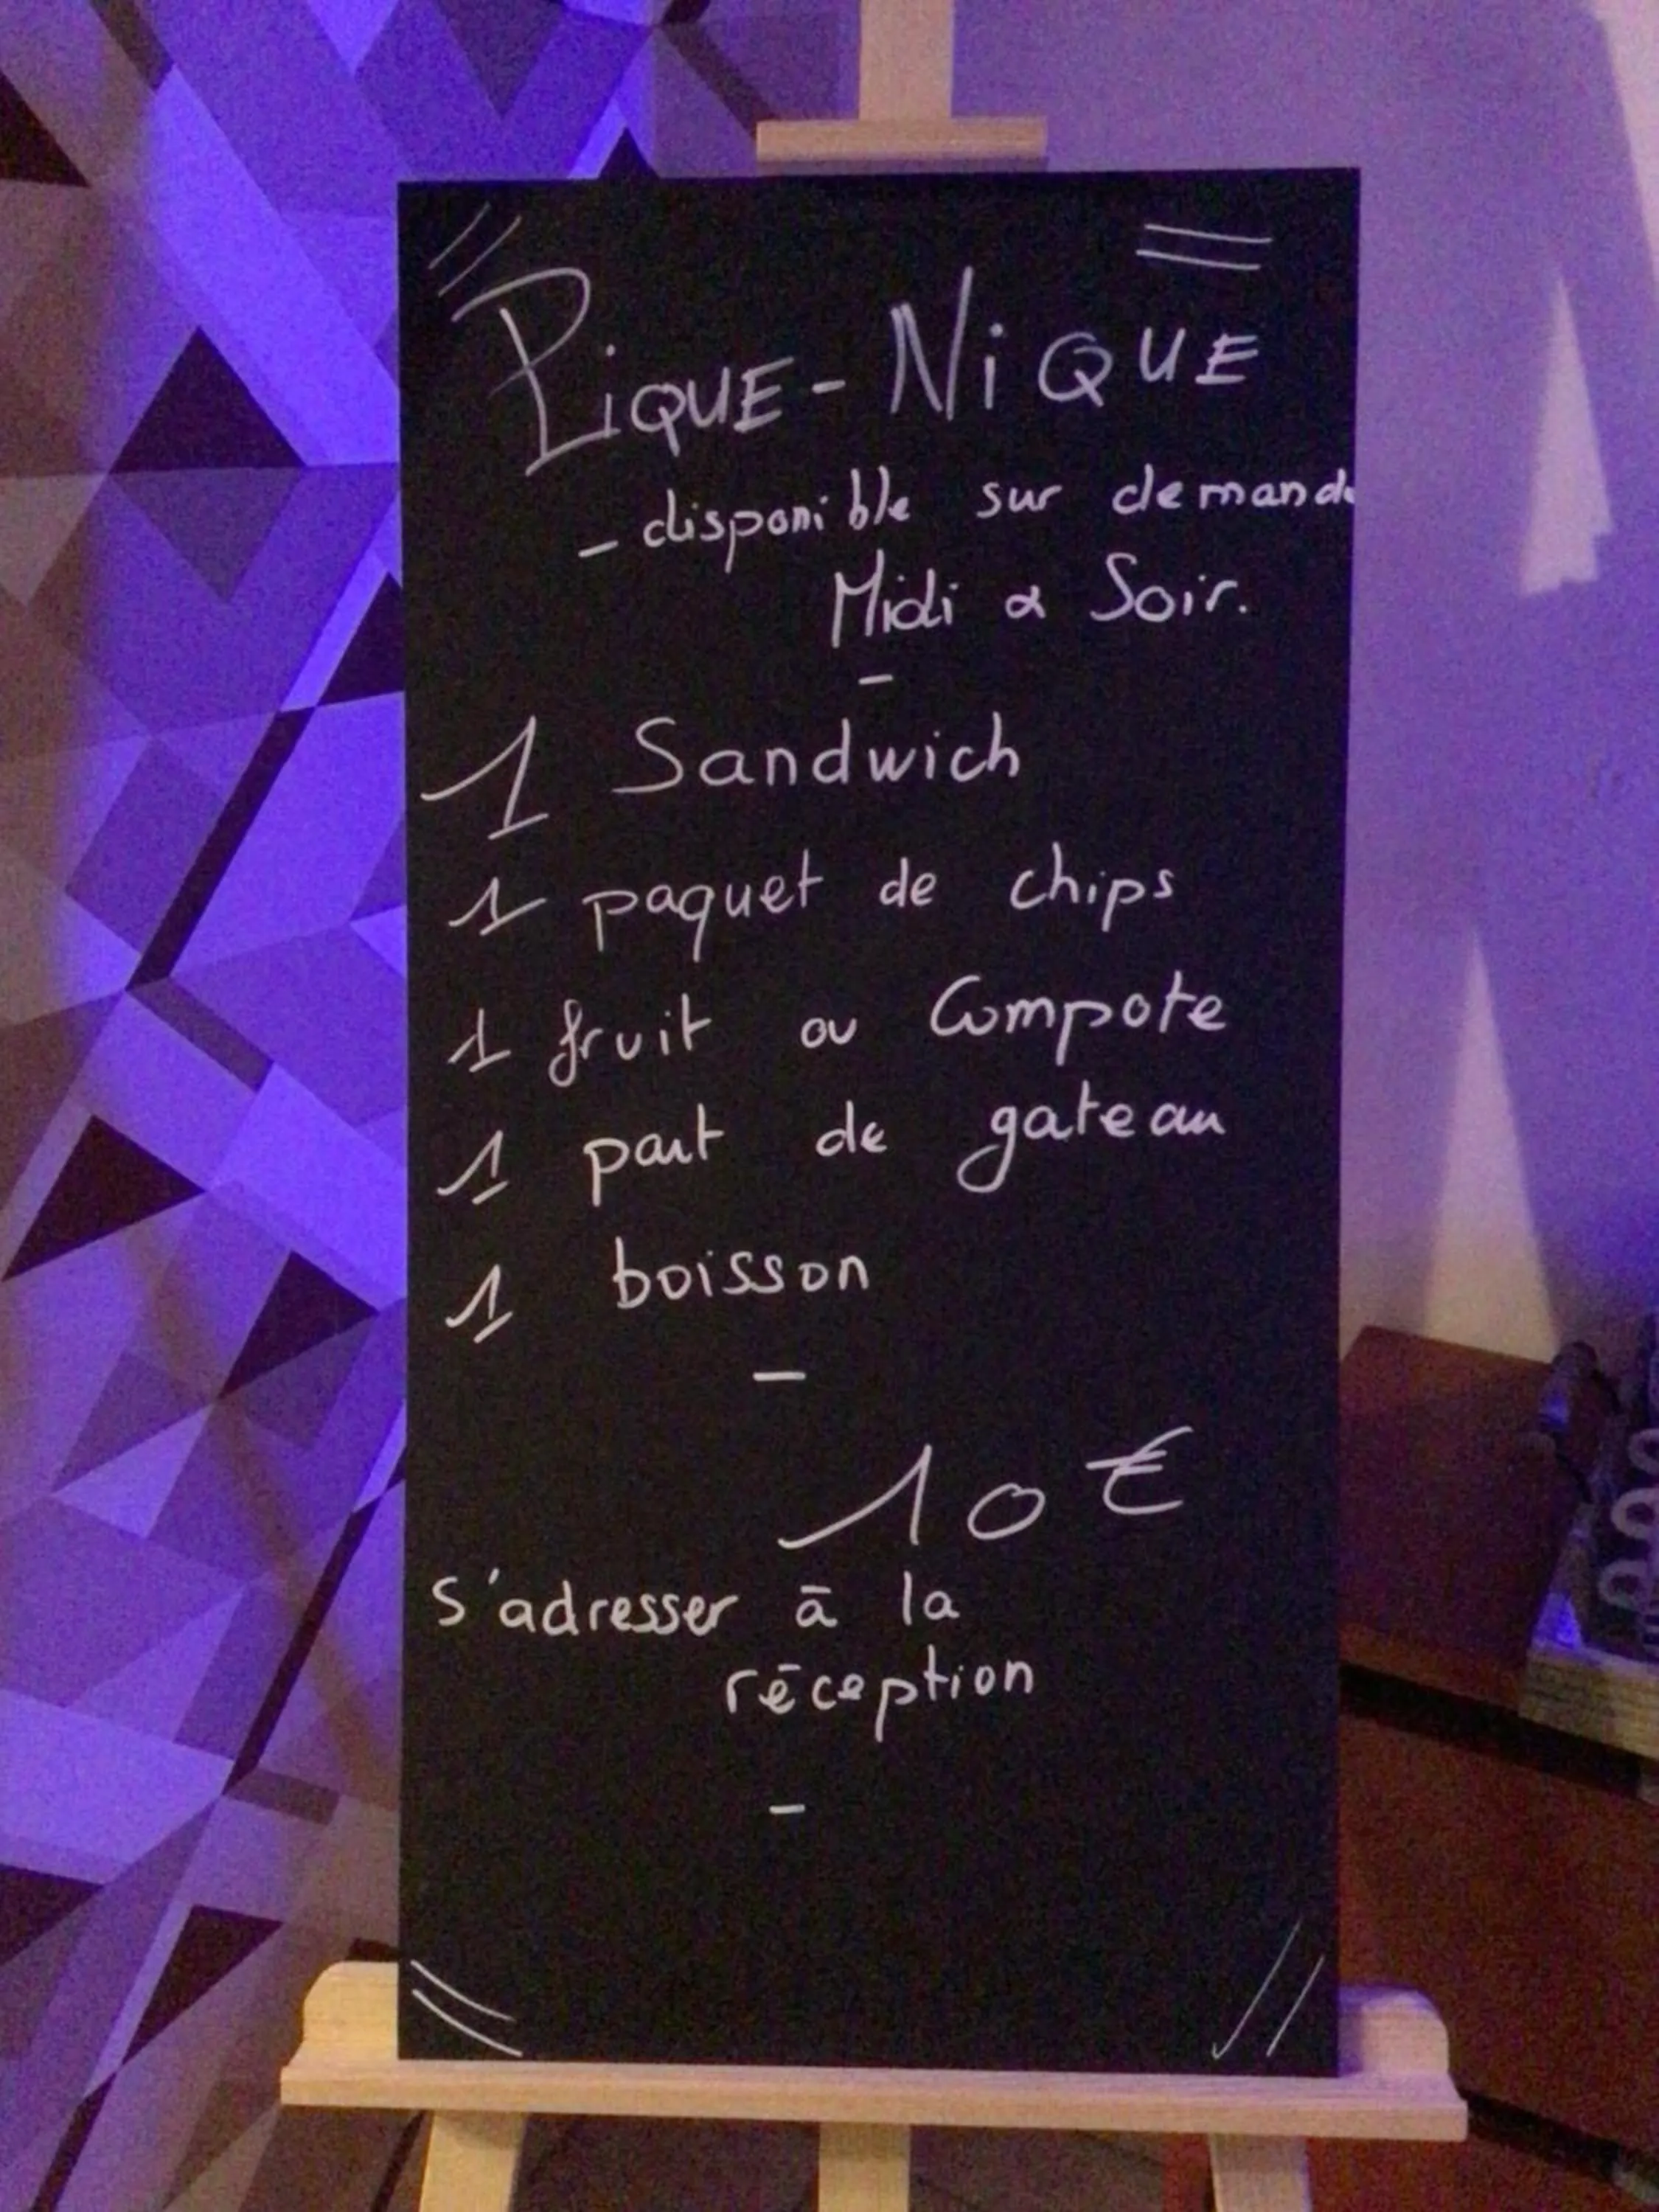 PiQUE-NiQUE
- disponible sur demande
Midi & Soir.
-
1 Sandwich
1 paquet de chips
1 fruit ou Compote
1 part de gateau
1 boisson
-
10 €
S'adresser à la
réception
-